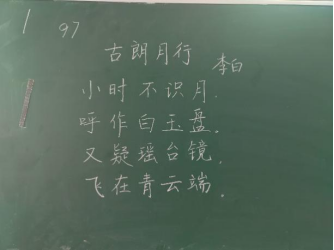 97
古朗月行
李白
小时不识月.
呼作白玉盘.
又疑瑶台镜.
飞在青云端.